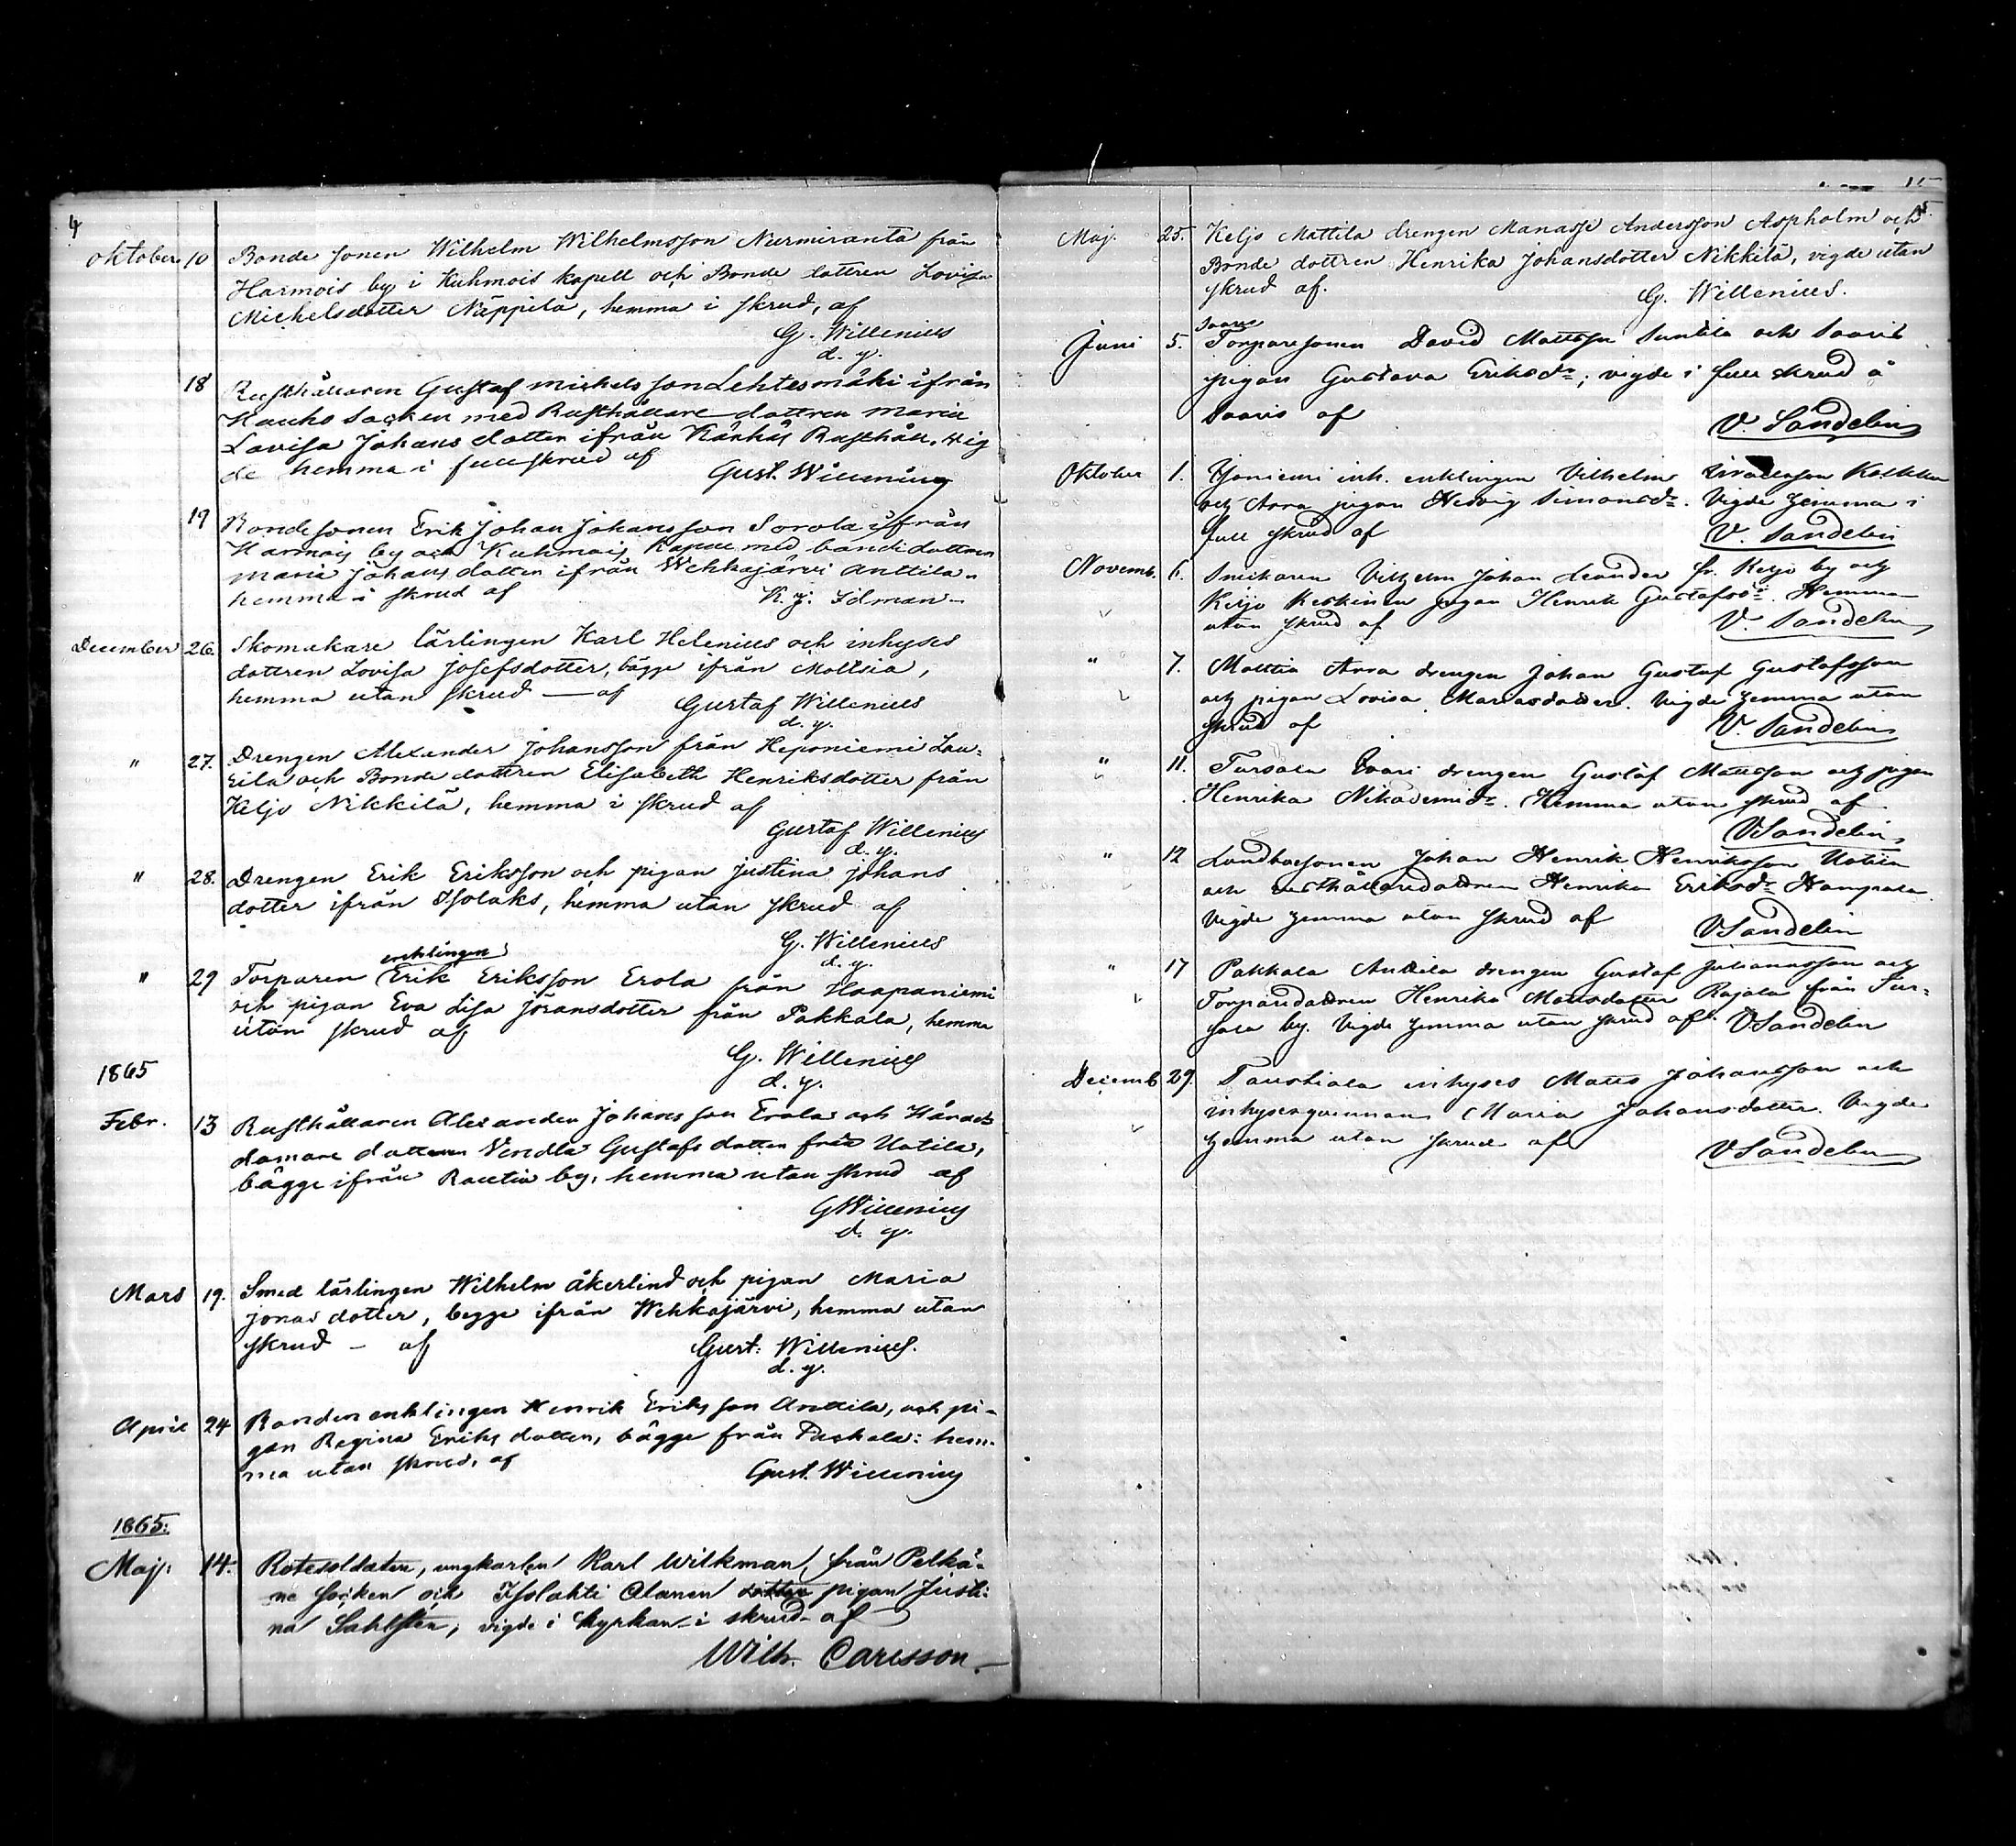 4
Oktober 10 Bonde sonen Wilhelm Wilhelmsson Nurmiranta från
Harmois by i Kuhmois kapell och Bonde dottren Lovisa
Michelsdotter Näppilä, hemma i skrud, af
G. Willenius
d. y.
18 Rusthållaren Gustaf Michelsson Lehtesmäki ifrån
Hauho Socken med Rusthållare dottren Maria
Lovisa Johansdotter ifrån Rusthåll. Wig
de hemma i full skrud af
Gust. Willenius
19 Bondesonen Erik Johan Johansson Sorola ifrån
Harmois by och Kuhmois Kapell med bondedottren
Maria Johansdotter ifrån Wehkajärvi Anttila
hemma i skrud af
K. J. Idman
December 26. Skomakare lärlingen Karl Helenius och inhyses
dottren Lovisa Josefsdotter, bägge ifrån Mattia,
hemma utan skrud — af
Gustaf Willenius
d. y.
" 27. Drengen Alexander Johansson från Heponiemi Lau-
rila och Bonde dottren Elisabeth Henriksdotter från
Keljo Nikkilä, hemma i skrud af
Gustaf Willenius
d. y.
" 28. Drengen Erik Eriksson och pigan Justina Johans
dotter ifrån Isolaks, hemma utan skrud af
G. Willenius
d. y.
enklingen
" 29 Torparen Erik Eriksson Erola från Haapaniemi
och pigan Eva Lisa Jöransdotter från Pakkala, hemma
utan skrud af
G. Willenius
d. y.
1865
Febr. 13 Rusthållaren Alexander Johansson Erola och Härads
domare dottren Vendla Gustafsdotter från Uotila,
bägge ifrån Rautia by, hemma utan skrud af
G Willenius
d. y.
Mars 19. Smed lärlingen Wilhelm Åkerlind och pigan Maria
Jonas dotter, begge ifrån Wehkajärvi, hemma utan
skrud — af
Gust. Willenius.
d. y.
April 24 Bonden enklingen Henrik Eriksson Anttila, och pi-
gan Regina Eriksdotter, bägge från hem-
ma utan skrud, af
Gust. Willenius
1865.
Maj. 14. Rotesoldaten, ungkarlen Karl Wilkman, från Pelkä-
ne socken och Isolahti Alanen dotter pigan Justi-
na Sahlstén, vigde i kyrkan i skrud af
Wilh. Carlsson.
5
Maj. 25. Keljo Mattila drengen Manasse Andersson Aspholm och
Bonde dottren Henrika Johansdotter Nikkilä, vigde utan
skrud af.
G. Willenius.
Saaris
Juni 5. Torparesonen David Mattsson Suntila och Saaris
pigan Gustava Eriksdr; vigde i full skrud å
Saaris af
V. Sandelin
Oktober 1. inh. enklingen Vilhelm
och Arra pigan Hedvig Simonsdr. Vigde hemma i
full skrud af
V. Sandelin
Novemb. 6. Snickaren Vilhelm Johan Leander fr. Keljo by och
Keljo Keskinen pigan Henrik Gustafsdr. Hemma
utan skrud af
V. Sandelin
" 7. Mattia Arra drengen Johan Gustaf Gustafsson
och pigan Lovisa Mariasdotter. Vigde hemma utan
skrud af
V. Sandelin
" 11. Tursola drengen Gustaf Mattsson och pigan
Henrika Nikodemidr. Hemma utan skrud af
V Sandelin
" 12 Landbosonen Johan Henrik Henriksson Uotila
och rusthållaredottren Henrika Eriksdr
Vigde hemma utan skrud af
V Sandelin
" 17 Pakkala Anttila drengen Gustaf Juliansson och
Torparedottren Henrika Mattsdotter Rajala från Tur-
sola by. Vigde hemma utan skrud af
V Sandelin
Decemb 29. Taustiala inhyses Matts Johansson och
inhysesqvinnan Maria Johansdotter. Vigde
hemma utan skrud af
V Sandelin